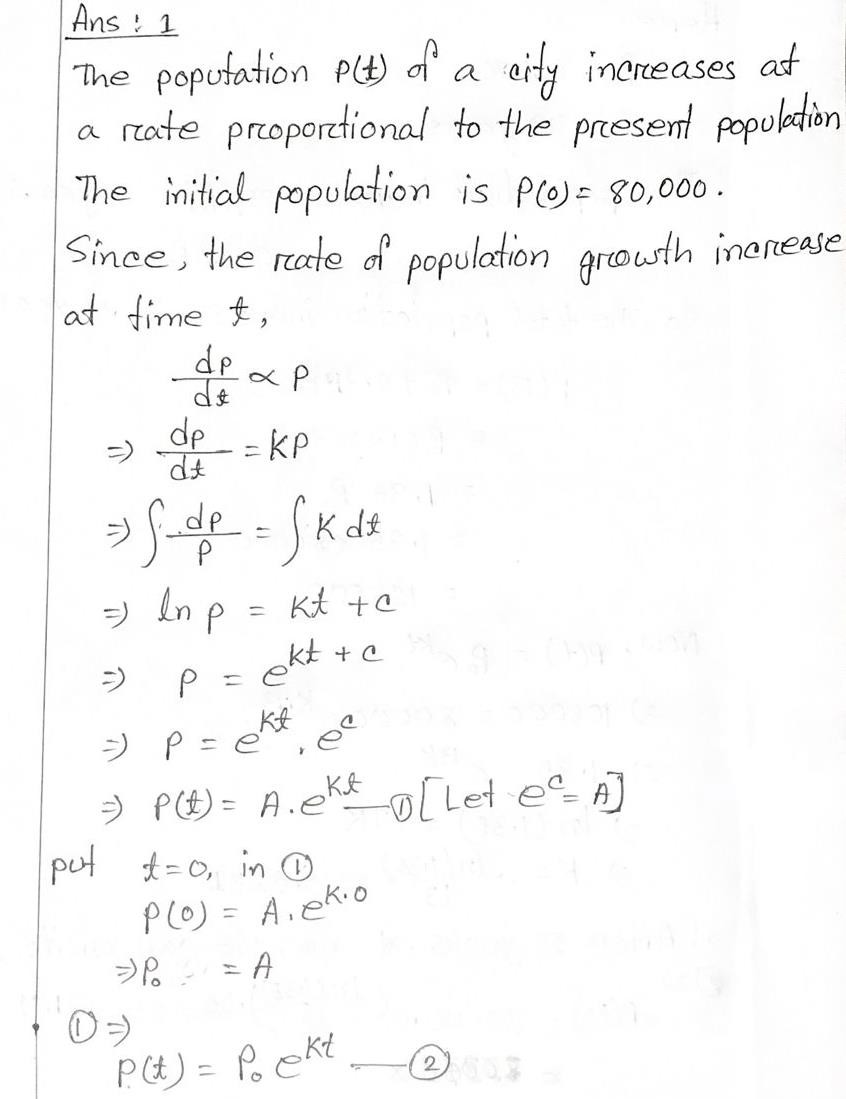 Ans : 1
The population P(t) of a city increases at
a rate proportional to the present population
The initial population is P(0) = 80,000.
Since, the rate of population growth increase
at time t,
dp/dt ∝ P
⇒ dp/dt = KP
⇒ ∫ dp/p = ∫ K dt
⇒ ln p = Kt + c
⇒ p = e^(kt + c)
⇒ p = e^(kt) . e^c
⇒ P(t) = A.e^(kt) — ① [Let e^c = A]
put t=0, in ①
P(0) = A.e^(K.0)
⇒ P₀ = A
① ⇒
P(t) = P₀ e^(kt) — ②